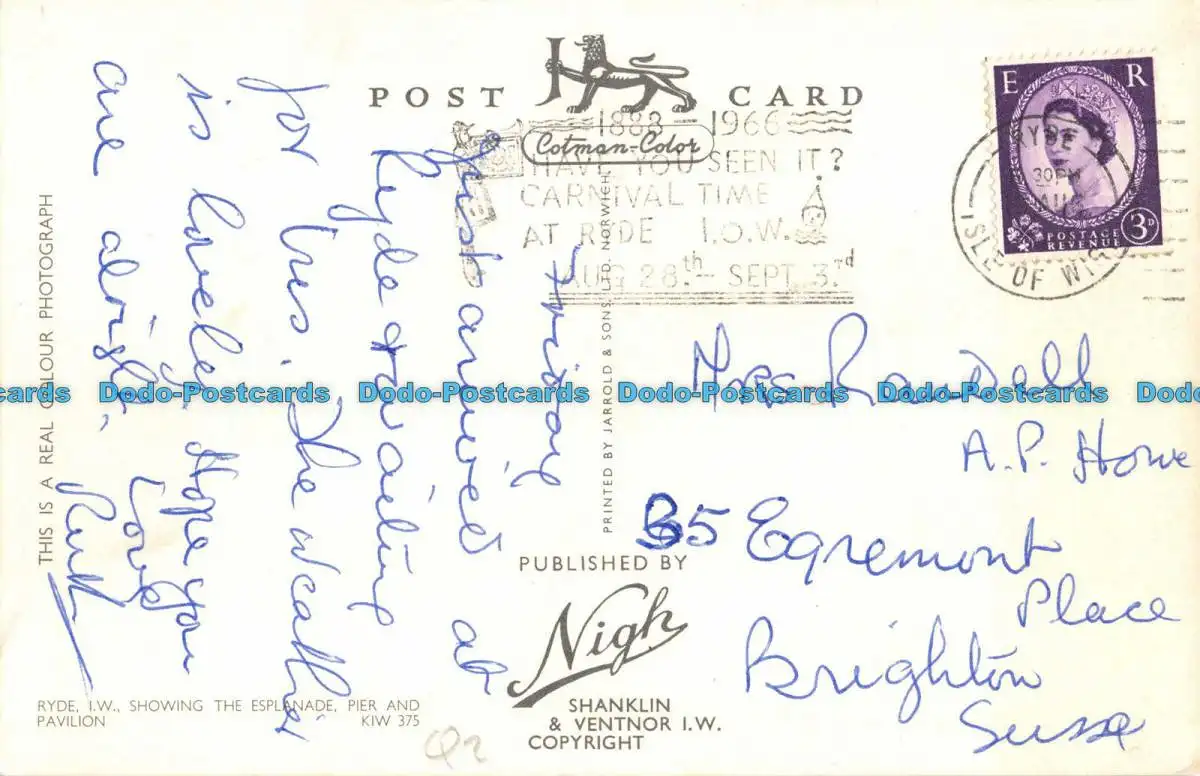 POST CARD
Cotman-Color
1883 1966
HAVE YOU SEEN IT?
CARNIVAL TIME
AT RYDE I.O.W.
AUG 28th - SEPT. 3rd
E R
POSTAGE
REVENUE
3D
30PM
ISLE OF WIG
Friday
Just arrived at
Ryde & waiting
for bus. The weather
is lovely. Hope you
are alright.
Love
Ruth
Mrs Randell
A.P. Howe
35 Egremont
Place
Brighton
Sussex
THIS IS A REAL COLOUR PHOTOGRAPH
PRINTED BY JARROLD & SONS LTD. NORWICH
PUBLISHED BY
Nigh
SHANKLIN
& VENTNOR I.W.
COPYRIGHT
RYDE, I.W., SHOWING THE ESPLANADE, PIER AND
PAVILION KIW 375
Dodo-Postcards Dodo-Postcards Dodo-Postcards Dodo-Postcards Dodo-Postcards